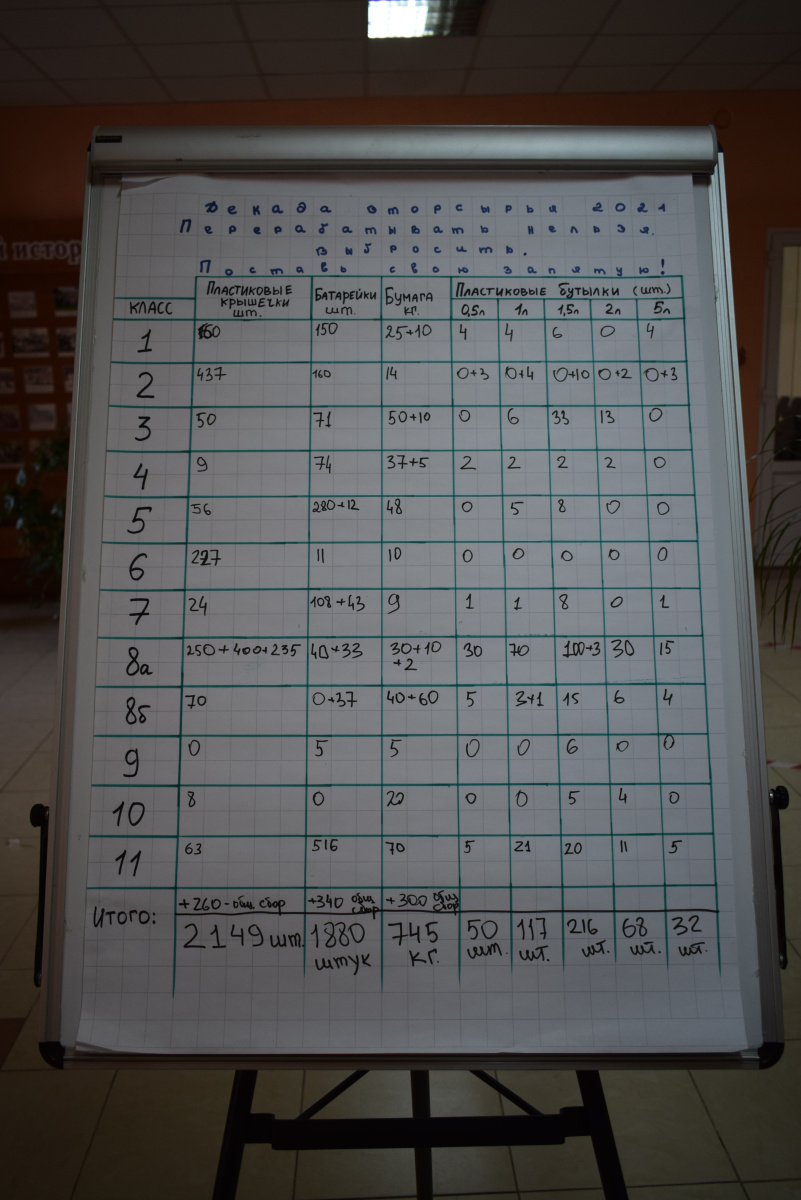 Декада вторсырья 2021
Перерабатывать нельзя
выбросить.
Поставь свою запятую!
КЛАСС ПЛАСТИКОВЫЕ КРЫШЕЧКИ шт. БАТАРЕЙКИ шт. БУМАГА кг. ПЛАСТИКОВЫЕ БУТЫЛКИ (шт.)
0,5л 1л 1,5л 2л 5л
1 160 150 25+10 4 4 6 0 4
2 437 160 14 0+3 0+4 0+10 0+2 0+3
3 50 71 50+10 0 6 33 13 0
4 9 74 37+5 2 2 2 2 0
5 56 280+12 48 0 5 8 0 0
6 227 11 10 0 0 0 0 0
7 24 108+43 9 1 1 8 0 1
8а 250+400+235 40+33 30+10+2 30 70 100+3 30 15
8б 70 0+37 40+60 5 3+1 15 6 4
9 0 5 5 0 0 6 0 0
10 8 0 20 0 0 5 4 0
11 63 516 70 5 21 20 11 5
+260-общ сбор +340 общ сбор +300 общ сбор
ИТОГО: 2149 шт. 1880 штук 745 кг. 50 шт. 117 шт. 216 шт. 68 шт. 32 шт.